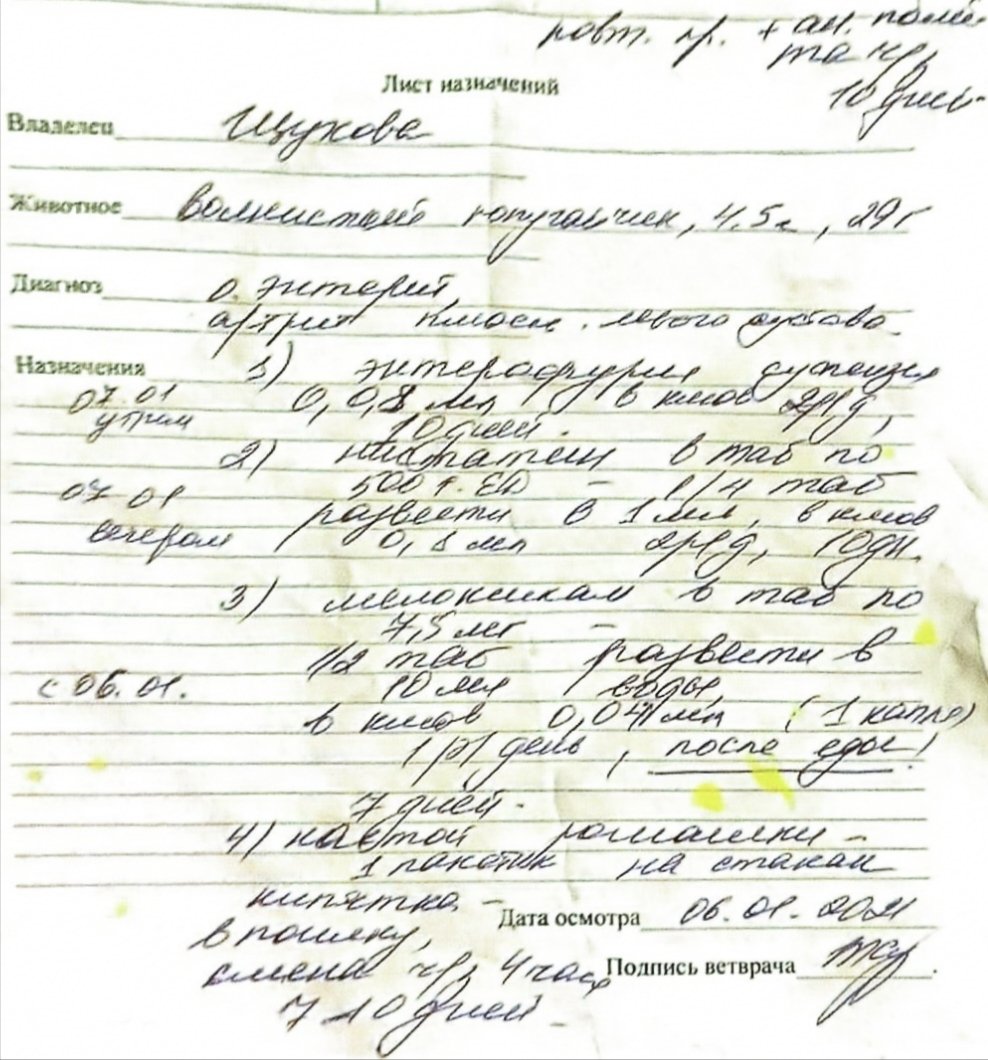 повт. пр. + ан. помё
та чр,
10 дней
Лист назначений
Владелец Щукова
Животное волнистый попугайчик, 4.5 г, 29 г
Диагноз о. энтерит,
артрит плюсн. левого сустава
Назначения 1) энтерофурил суспензия
07.01 0,08 мл в клюв 2р/д,
утром 10 дней.
2) нистатин в таб по
07.01 500 т. ЕД – 1/4 таб
развести в 1 мл, в клюв
вечером 0,1 мл 2р/д, 10дн.
3) мелоксикам в таб по
7,5 мг –
1/2 таб развести в
с 06.01. 10 мл воды,
в клюв 0,04 мл (1 капля)
1 р/день, после еды!
7 дней.
4) настой ромашки –
1 пакетик на стакан
кипятка –
Дата осмотра 06.01.2021
в поилку,
смена чр, 4 часа
Подпись ветврача
7-10 дней.